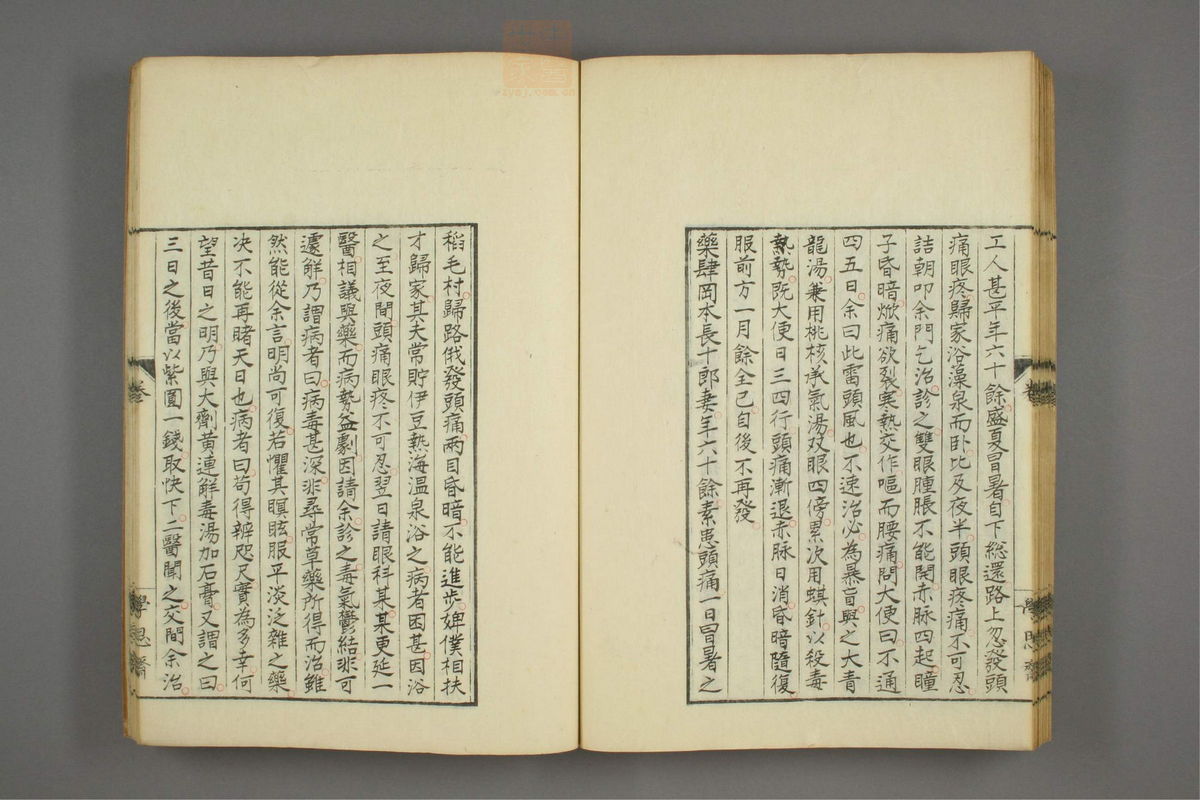 工人甚平年六十餘盛夏冒暑自下総還路上忽發頭
痛眼疼歸家浴藻泉而卧比及夜半頭眼疼痛不可忍
詰朝叩余門乞治診之雙眼腫脹不能開赤脉四起瞳
子昏暗焮痛欲裂寒熱交作嘔而腰痛問大便曰不通
四五日余曰此雷頭風也不速治必為暴盲與之大青
龍湯兼用桃核承氣湯双眼四傍累次用蜞針以殺毒
熱勢既大便日三四行頭痛漸退赤脉日消昏暗隨復
服前方一月餘全已自後不再發
藥肆岡本長十郎妻年六十餘素患頭痛一日冒暑之
稻毛村歸路俄發頭痛兩目昏暗不能進步婢僕相扶
才歸家其夫常貯伊豆熱海温泉浴之病者困甚因浴
之至夜間頭痛眼疼不可忍翌日請眼科某某更延一
醫相議與藥而病勢益劇因請余診之毒氣鬱結非可
遽解乃謂病者曰病毒甚深非尋常草藥所得而治雖
然能從余言明尚可復若懼其瞑眩服平淡泛雜之藥
决不能再睹天日也病者曰苟得辨咫尺實為多幸何
望昔日之明乃與大劑黄連解毒湯加石膏又謂之曰
三日之後當以紫圓一錢取快下二醫聞之交間余治
卷
學思齋